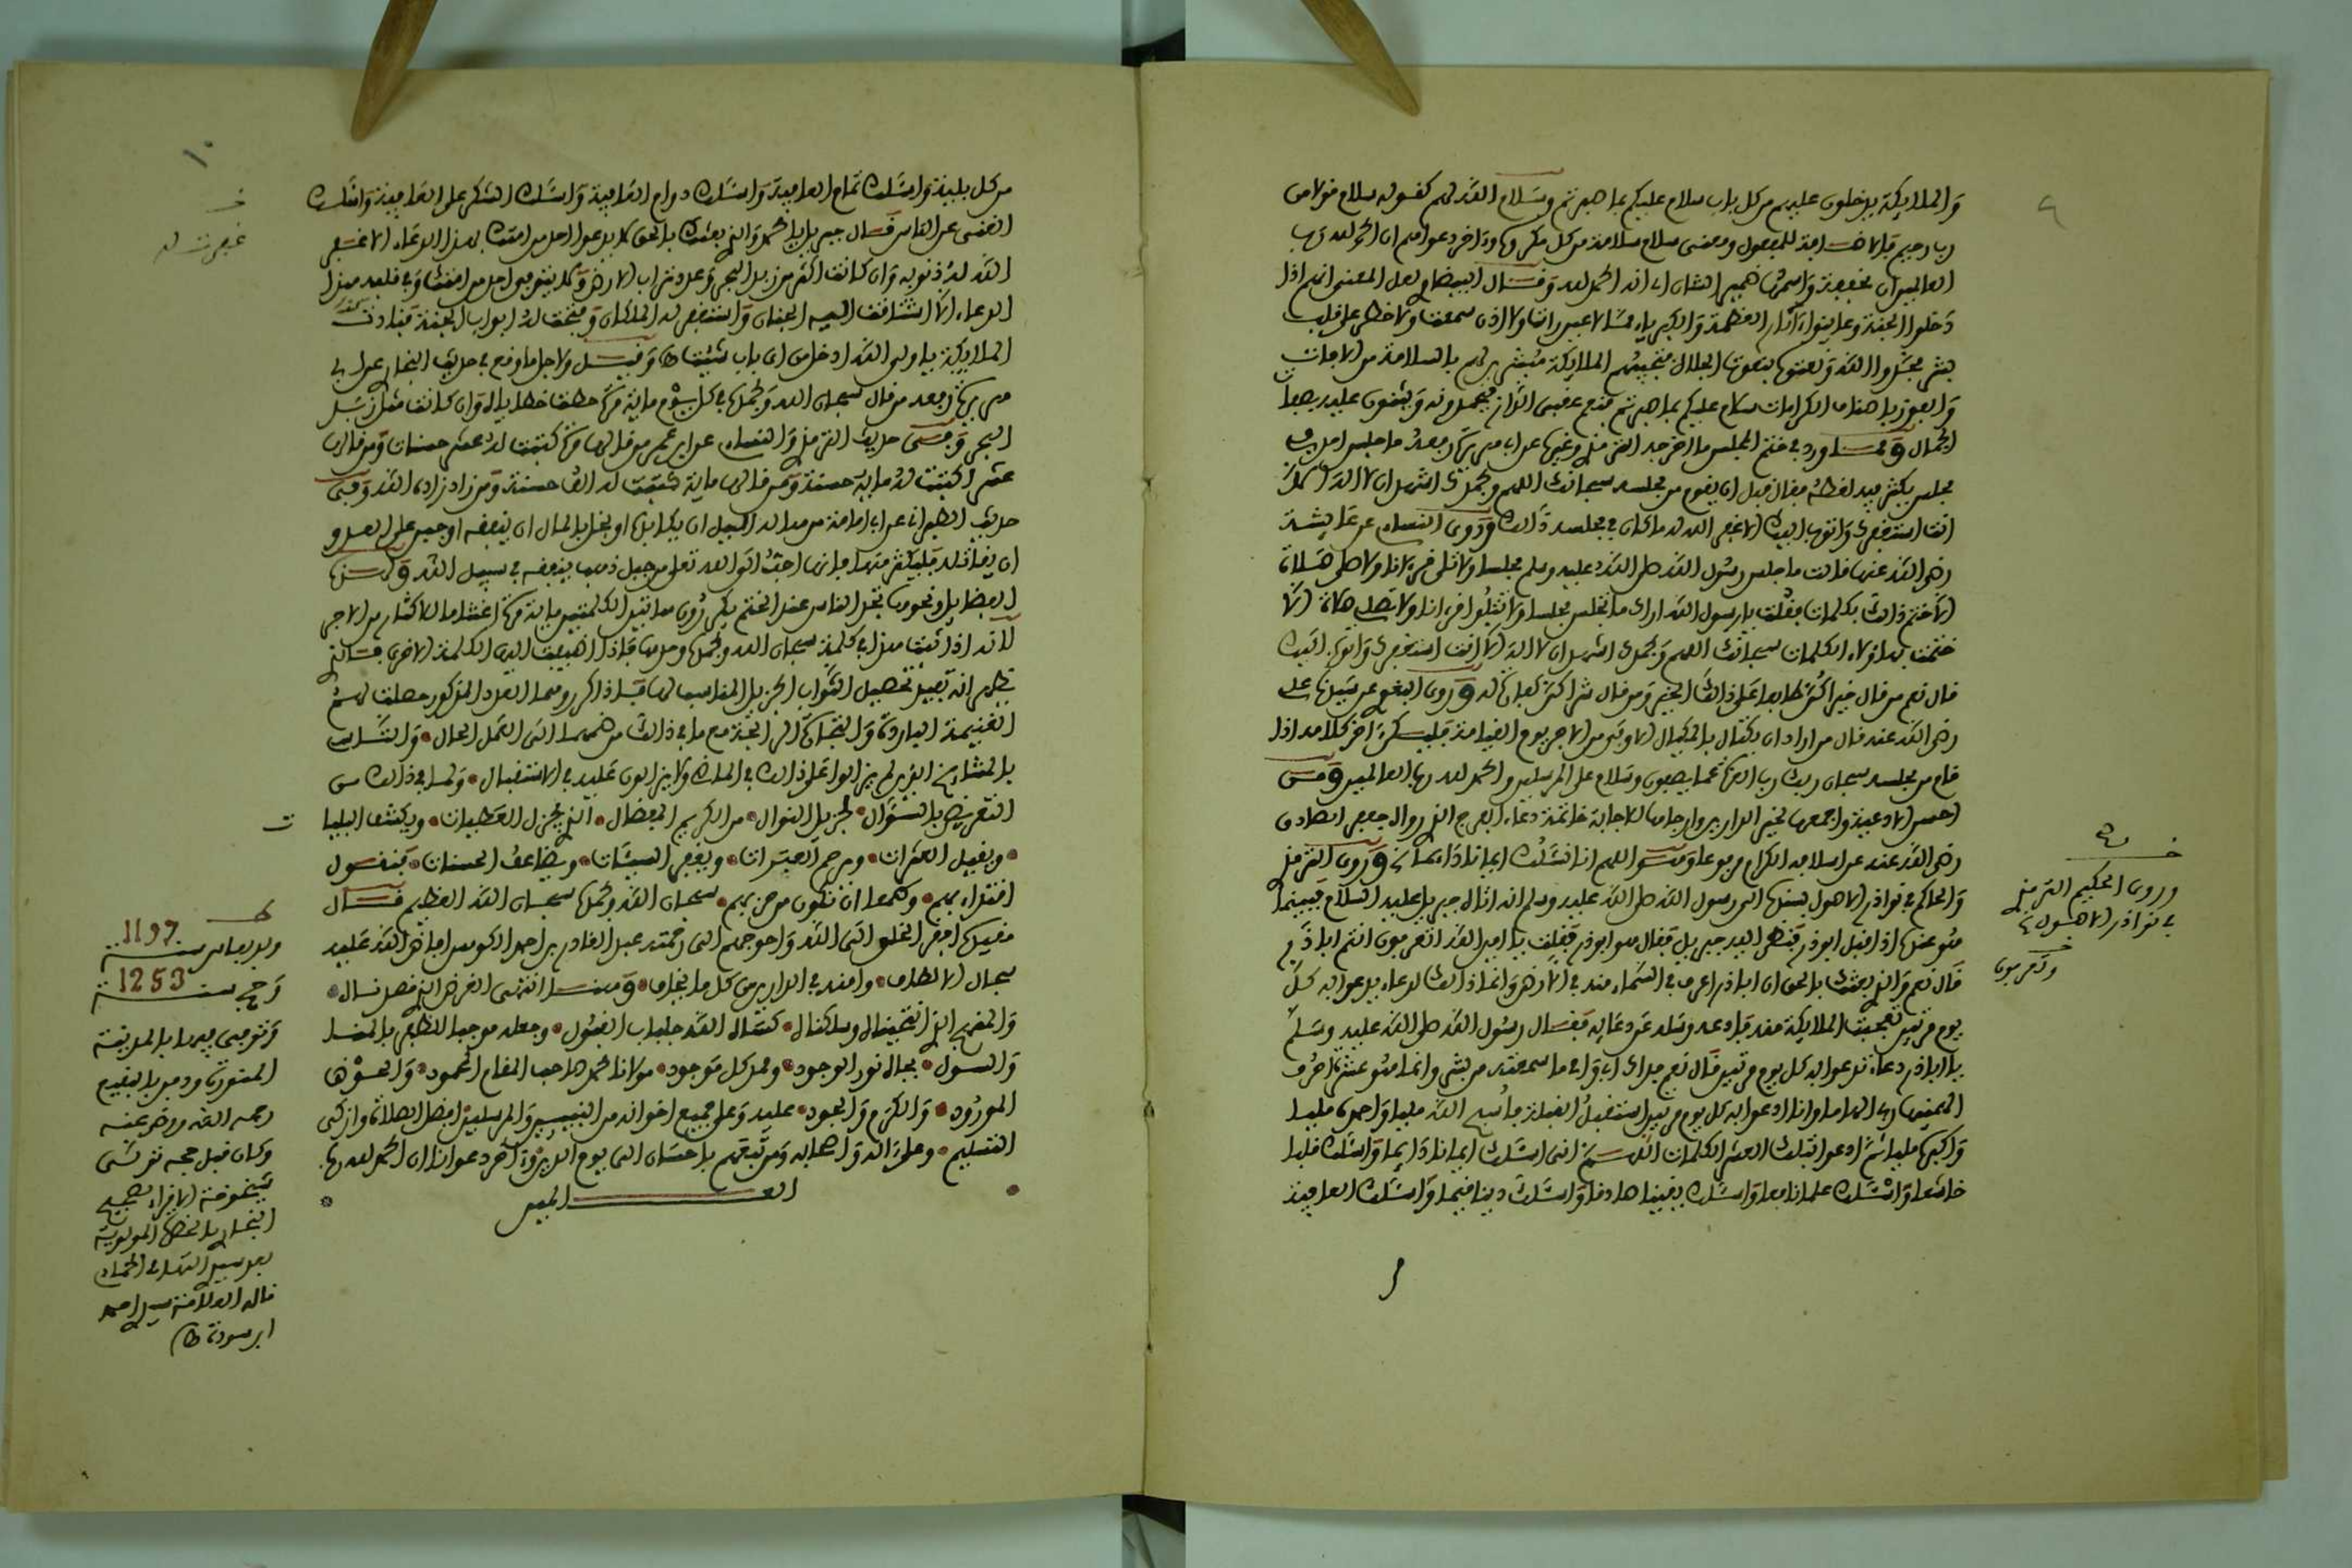 والملائكة يدخلون عليهم من كل باب سلام عليكم بما صبرتم وسلام الله لهم كقوله سلام قولا من
رب رحيم فالإضافة للمفعول ومعنى سلام سلامة من كل مكروه وءاخر دعواهم ان الحمد لله رب
العالمين ان مخففة واسمها ضمير الشان اي انه الحمد لله وقال البيضاوي لعل المعنى انهم اذا
دخلوا الجنة وعاينوا ءاثار العظمة والكبرياء مما لا عين رات ولا اذن سمعت ولا خطر على قلب
بشر مجدوا الله ونعتوه بنعوت الجلال فتحييهم الملائكة مبشرين لهم بالسلامة من الآفات
والفوز باصناف الكرامات سلام عليكم بما صبرتم فنعم عقبى الدار فيحمدونه ويثنون عليه بصفات
الجمال ومما ورد في ختم المجلس ما اخرجه الترمذي وغيره عن ابي هريرة رفعه ما جلس احد في
مجلس يكثر فيه لغطه فقال قبل ان يقوم من مجلسه سبحانك اللهم وبحمدك اشهد ان لا اله الا
انت استغفرك واتوب اليك الا غفر الله له ما كان في مجلسه ذالك وروى النسائي عن عائشة
رضي الله عنها قالت ما جلس رسول الله صلى الله عليه وسلم مجلسا ولا تلى قرءانا ولا صلى صلاة
الا ختم ذالك بكلمات فقلت يا رسول الله اراك ما تجلس مجلسا ولا تتلوا قرءانا ولا تصلي صلاة الا
ختمت بهاؤلاء الكلمات سبحانك اللهم وبحمدك اشهد ان لا اله الا انت استغفرك واتوب اليك
قال نعم من قال خيرا كن طابعا على ذالك الخير ومن قال شرا كن كفارة له وروى البغوي عن سيدنا علي
رضي الله عنه قال من اراد ان يكتال بالمكيال الاوفى من الاجر يوم القيامة فليكن ءاخر كلامه اذا
قام من مجلسه سبحان ربك رب العزة عما يصفون وسلام على المرسلين والحمد لله رب العالمين ومن
احسن الادعية واجمعها لخير الدارين وارجاها للاجابة خاتمة دعاء الفرج الذي رواه جعفر الصادق
رضي الله عنه عن اسلافه الكرام مرفوعا وهو اللهم انا نسئلك ايمانا دائما وروى الترمذي
والحاكم في نوادر الاصول بسنده الى رسول الله صلى الله عليه وسلم انه اتاه جبريل عليه السلام فبينما
هو عنده اذ اقبل ابو ذر فنظر اليه جبريل فقال هو ابو ذر فقلت يا امين الله اتعرفون انتم ابا ذر
قال نعم والذي بعثك بالحق ان ابا ذر اعرف في السماء منه في الارض وانما ذالك لدعاء يدعوا به كل
يوم مرتين تعجبت الملائكة منه فادعه وسله عن دعائه فقال رسول الله صلى الله عليه وسلم
يا ابا ذر دعاء تدعوا به كل يوم مرتين قال نعم فداك ابي وامي ما سمعته من بشر وانما هو عشرة احرف
الهمنيها ربي الهاما وانا ادعوا به كل يوم مرتين استقبل القبلة فاسبح الله مليا واحمده مليا
واكبره مليا ثم ادعوا بتلك العشر الكلمات اللهم اني اسئلك ايمانا دائما واسئلك قلبا
خاشعا واسئلك علما نافعا واسئلك يقينا صادقا واسئلك دينا قيما واسئلك العافية
وروى الحكيم الترمذي
في نوادر الاصول
١٠
من كل بلية واسئلك تمام العافية واسئلك دوام العافية واسئلك الشكر على العافية واسئلك
الغنى عن الناس قال جبريل يا محمد والذي بعثك بالحق لا يدعوا احد من امتك بهذا الدعاء الا غفر
الله له ذنوبه وان كانت اكثر من زبد البحر وعدد تراب الارض ولا يلقى احد من امتك وفي قلبه هذا
الدعاء الا اشتاقت اليه الجنان واستغفر له الملكان وفتحت له ابواب الجنة فنادت
الملائكة يا ولي الله ادخل من اي باب شئت وقيل ولاجل ما وقع في حديث البخاري عن ابي
هريرة رفعه من قال سبحان الله وبحمده في كل يوم مائة مرة حطت خطاياه وان كانت مثل زبد
البحر وفي حديث الترمذي والنسائي عن ابن عمر من قالها مرة كتبت له عشر حسنات ومن قالها
عشرا كتبت له مائة حسنة ومن قالها مائة كتبت له الف حسنة ومن زاد زاده الله وفي
حديث الطبراني عن ابي امامة من هاله الليل ان يكابده او بخل بالمال ان ينفقه او جبن على العدو
ان يقاتله فليكثر منها فانها احب الى الله تعلى من جبل ذهب ينفقه في سبيل الله
الفضايل ونحوها تجد الناس عند الختم يكررون هاتين الكلمتين مائة مرة اغتناما للاكثار من الاجر
لانه اذا ثبت هذا في كلمة سبحان الله وبحمده وحدها فاذا اضيفت اليها الكلمة الاخرى
تحصيل الثواب الجزيل المناسب لها فاذا كررهما العدد المذكور حصلت لهم
الغنيمة الباردة والتجارة الرابحة مع ما في ذالك من ضميمة التي العمل الحال والتاسي
بالمشايخ الذين لم يزالوا على ذالك في الماضي ولا يزالون عليه في الاستقبال ولما في ذالك من
التعريض بالسؤال لجزيل النوال من الكريم المفضال الذي يجزل العطيات ويكشف البليات
ويقيل العثرات ويرحم العبرات ويغفر السيئات ويضاعف الحسنات فنقول
اقتداء بهم وطمعا ان نكون من حزبهم سبحان الله وبحمده سبحان الله العظيم قال
مقيده افقر الخلق الى الله واحوجهم الى رحمته عبد القادر بن احمد الكوهن افاض الله عليه
سجال الالطاف وامنه في الدارين من كل ما يخاف وهنا انتهى الغرض الذي فصدناه
والمنهج الذي انتحيناه وسلكناه كساه الله جلباب القبول وجعله موجبا للظفر بالمنا
والسول بجاه نور الوجود وممد كل موجود مولانا محمد صاحب المقام المحمود والحوض
المورود والكرم والجود عليه وعلى جميع اخوانه من النبيين والمرسلين افضل الصلاة وازكى
التسليم وعلى ءاله واصحابه ومن تبعهم باحسان الى يوم الدين وءاخر دعوانا ان الحمد لله رب
العالمين
ولد بفاس سنة 1197
وحج سنة 1253
وتوفي بها بالمدينة
المنورة ودفن بالبقيع
رحمه الله ورضي عنه
وكان قبل حجه تولى
قاله العلامة سيدي احمد
ابن سودة